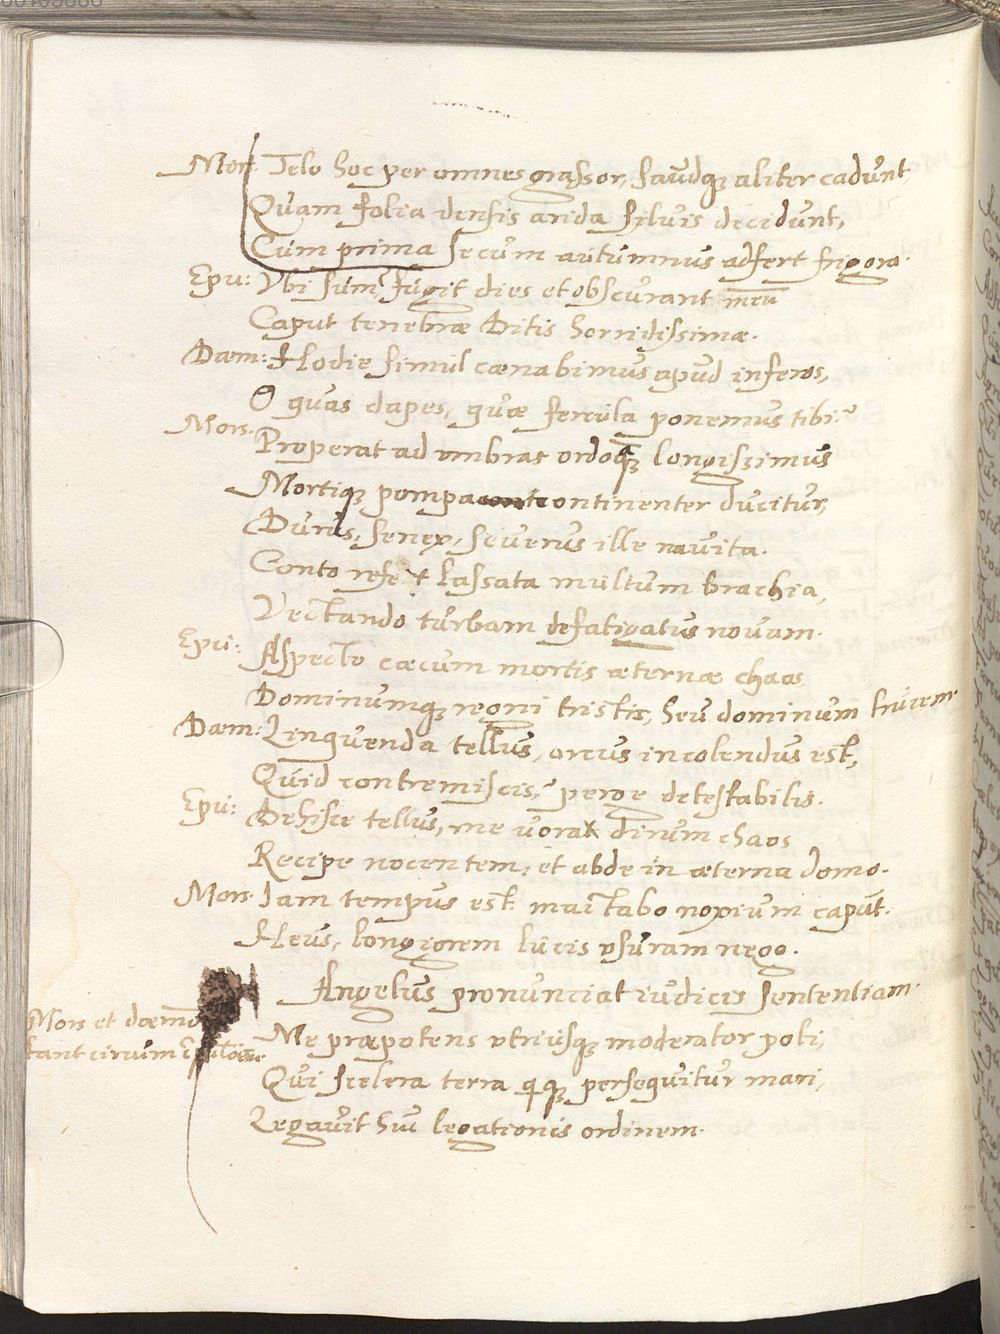 Mors Telo hoc per omnes grassor, haudq; aliter cadunt,
Quam folia densis arida siluis decidunt,
Cum prima secum autumnus adfert frigora.
Epu: Vbi sum? fugit dies et obscurant meū
Caput tenebræ Ditis horridissimæ.
Dæm: Hodie simul cænabimus apud inferos,
O quas dapes, quæ fercula ponemus tibi?
Mors. Properat ad vmbras ordoq; longissimus
Mortiq; pompa continenter ducitur,
Durus, senex, seuerus ille nauita.
Conto refert lassata multum brachia,
Vectando turbam defatigatus nouam.
Epu: Aspecto cæcum mortis æternæ chaos
Dominumq; regni tristis, heu dominum trucem.
Dæm: Linquenda tellus, orcus incolendus est,
Quid contremiscis? perge detestabilis.
Epu: Dehisce tellus, me vorax dirum chaos
Recipe nocentem, et abde in æterna domo.
Mors. Iam tempus est mactabo noxium caput.
Heus, longiorem lucis vsuram nego.
Angelus pronunciat iudicis sententiam.
Mors et dæmō
tant circum Epulonē
Me præpotens vtriusq; moderator poli,
Qui scelera terra qiq; persequitur mari,
Legauit huc legationis ordinem.